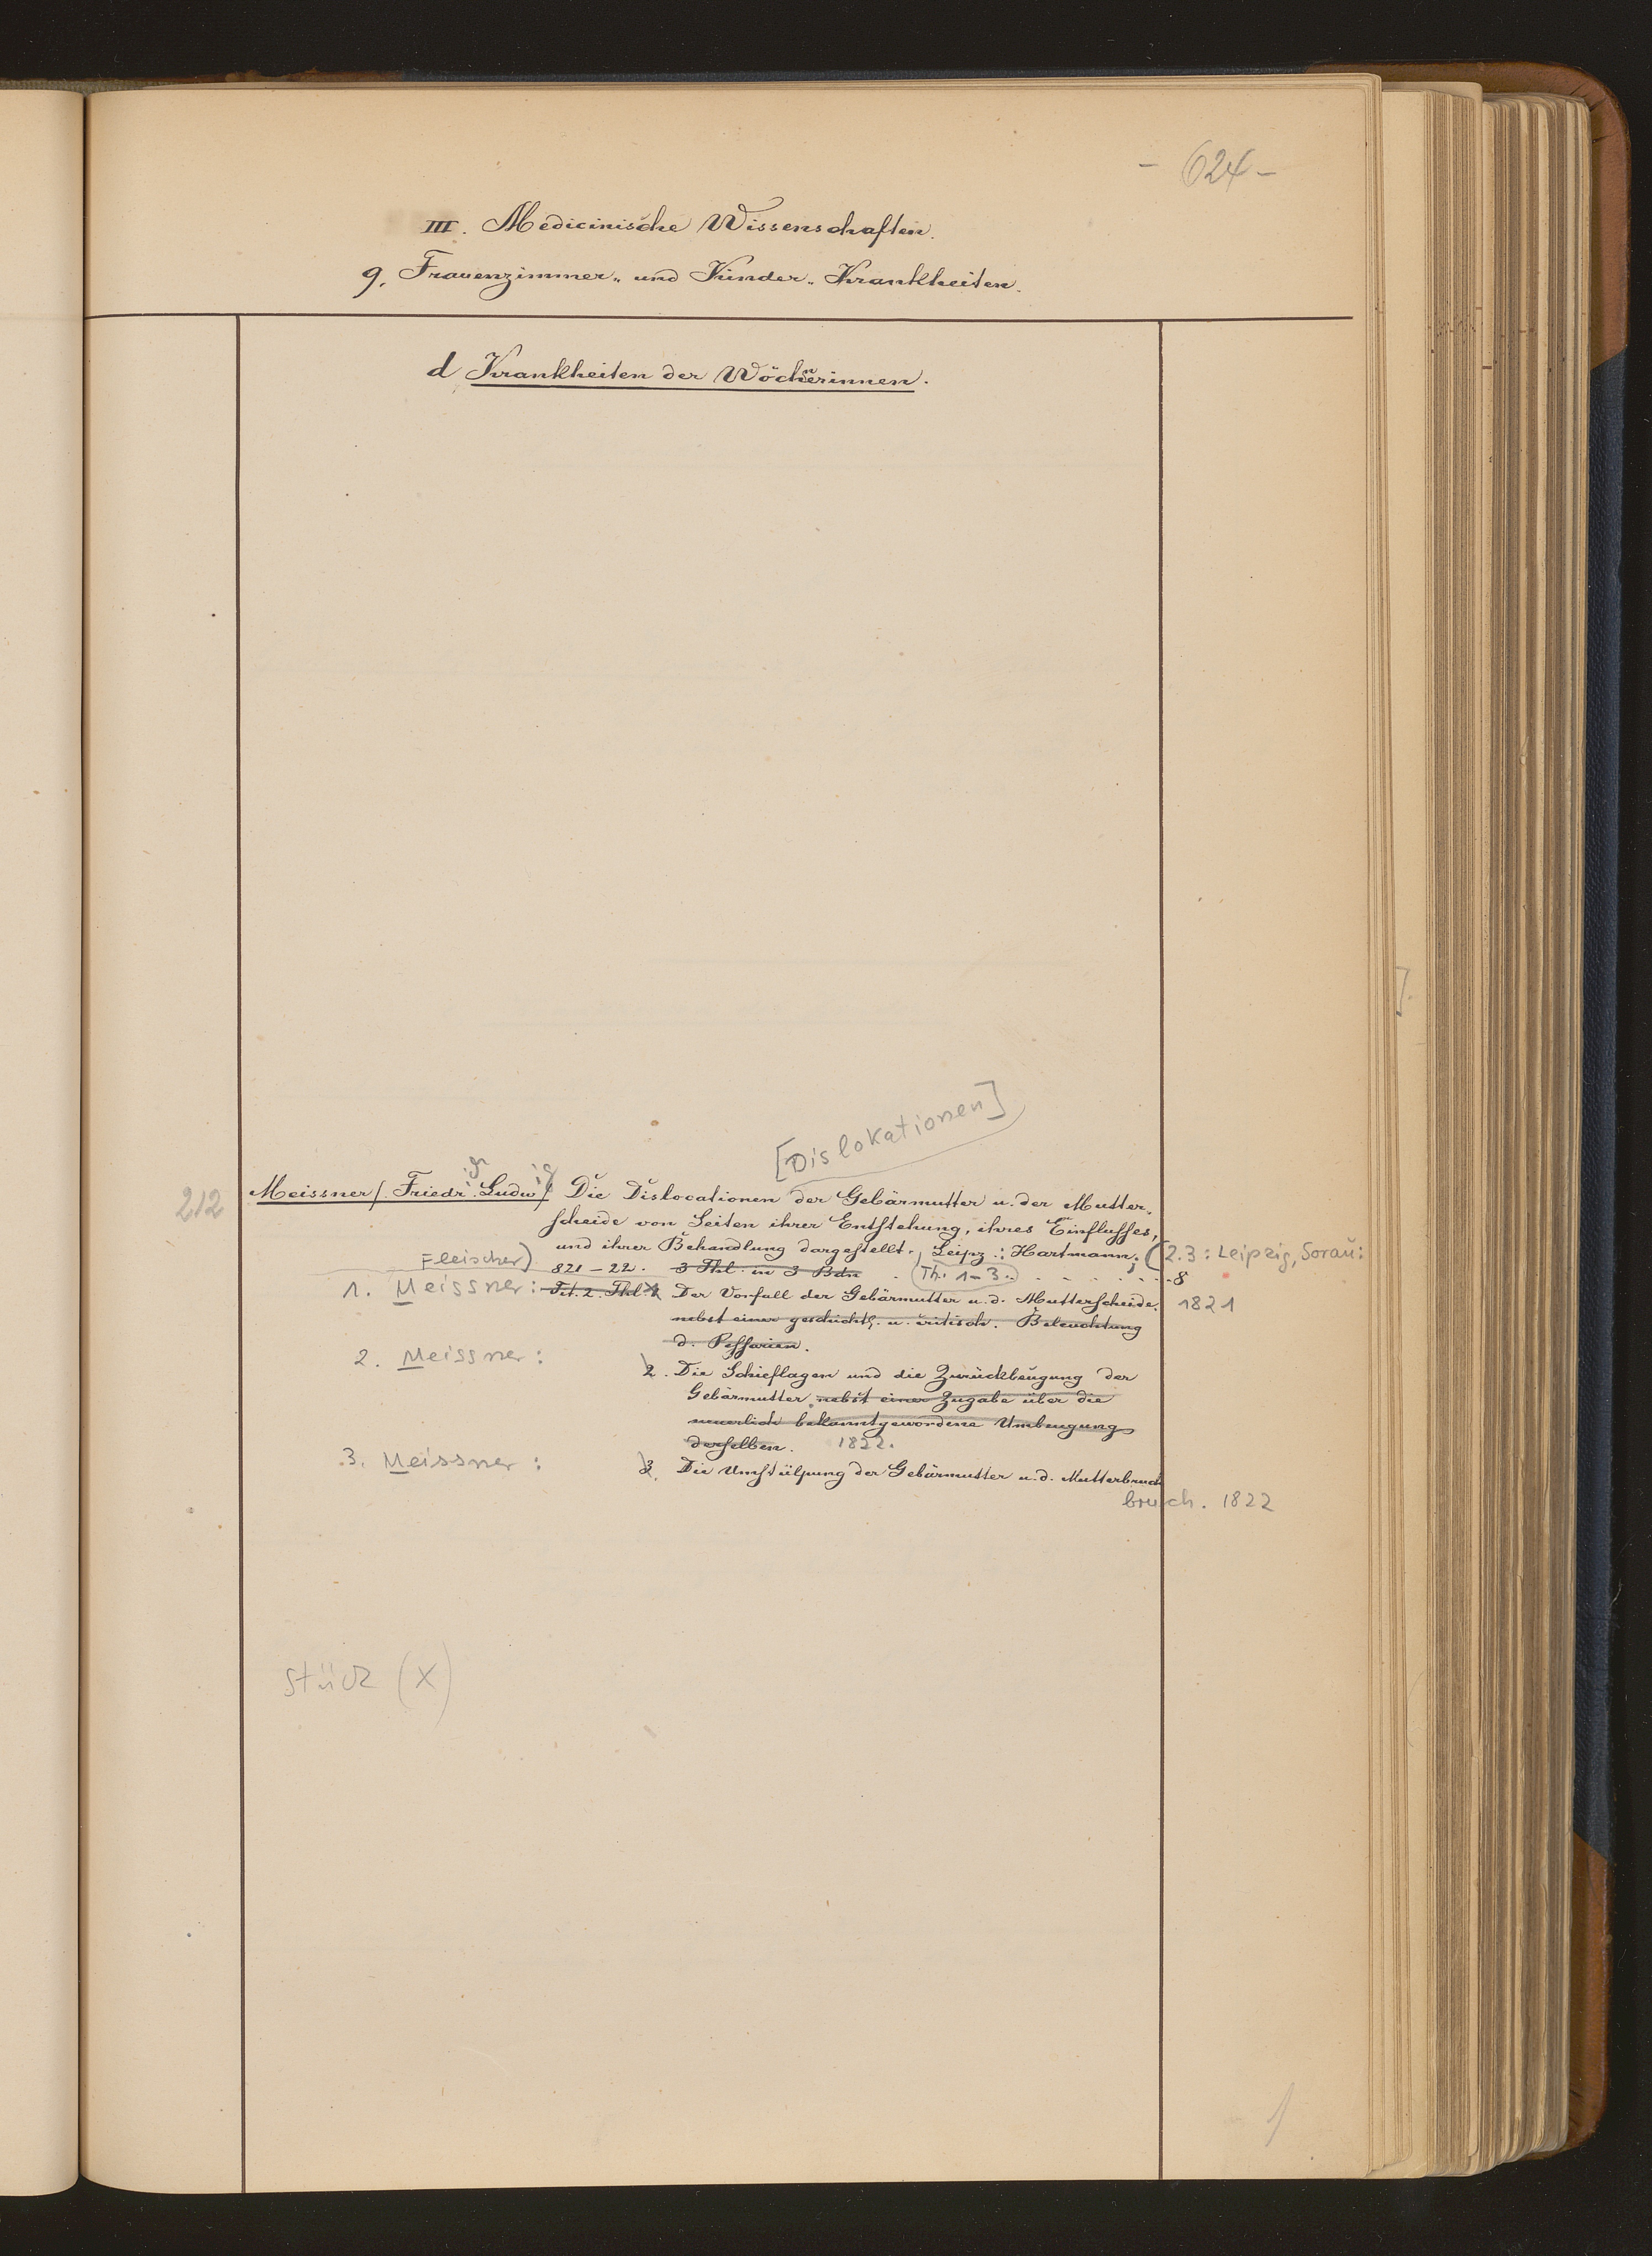 - 624 -
III. Medicinische Wissenschaften.
9. Frauenzimmer- und Kinder-Krankheiten.
d Krankheiten der Wöchnerinnen.
[Dislokationen]
212 Meissner/. Friedrich Ludwig/ Die Dislocationen der Gebärmutter u. der Mutter-
scheide von Seiten ihrer Entstehung, ihres Einflusses,
und ihrer Behandlung dargestellt. Leipz.: Hartmann; (2.3: Leipzig, Sorau:
Fleischer) 821-22. 3 Thl. in 3 Bdn (Th. 1-3.) 8
1. Meissner: Tit. 2. Thl. 1. Der Vorfall der Gebärmutter u. d. Mutterscheide. 1821
nebst einer geschichtl. u. critisch. Beleuchtung
d. Pessarien.
2. Meissner: 2. Die Schieflagen und die Zurückbeugung der
Gebärmutter nebst einer Zugabe über die
neuerlich bekanntgewordene Umbeugung
derselben. 1822.
3. Meissner: 3. Die Umstülpung der Gebärmutter u. d. Mutterbruch
bruch. 1822
Stück (X)